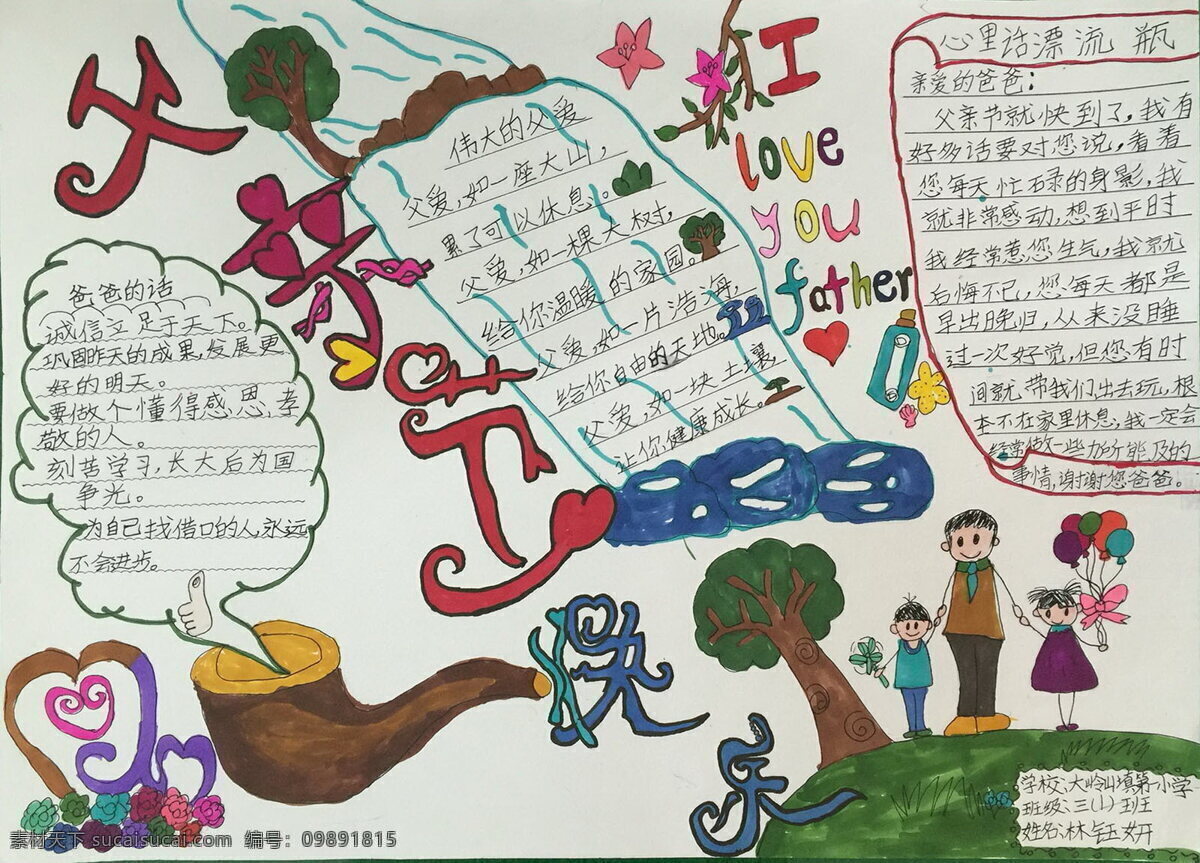 父亲节快乐
I
love
you
father
伟大的父爱
父爱,如一座大山,
累了可以休息。
父爱,如一棵大树,
给你温暖的家园,
父爱,如一片浩海,
给你自由的天地。
父爱,如一块土壤,
让你健康成长。
心里话漂流瓶
亲爱的爸爸:
父亲节就快到了,我有
好多话要对您说,看着
您每天忙碌的身影,我
就非常感动,想到平时
我经常惹您生气,我就
后悔不已,您每天都是
早出晚归,从来没睡
过一次好觉,但您有时
间就带我们出去玩,根
本不在家里休息,我一定会
经常做一些力所能及的
事情,谢谢您爸爸。
爸爸的话
诚信立足于天下。
巩固昨天的成果,发展更
好的明天。
要做个懂得感恩,孝
敬的人。
刻苦学习,长大后为国
争光。
为自己找借口的人,永远
不会进步。
学校:大岭山镇第一小学
班级:三(1)班
姓名:林钰妍
素材天下 sucaisucai.com 编号:09891815